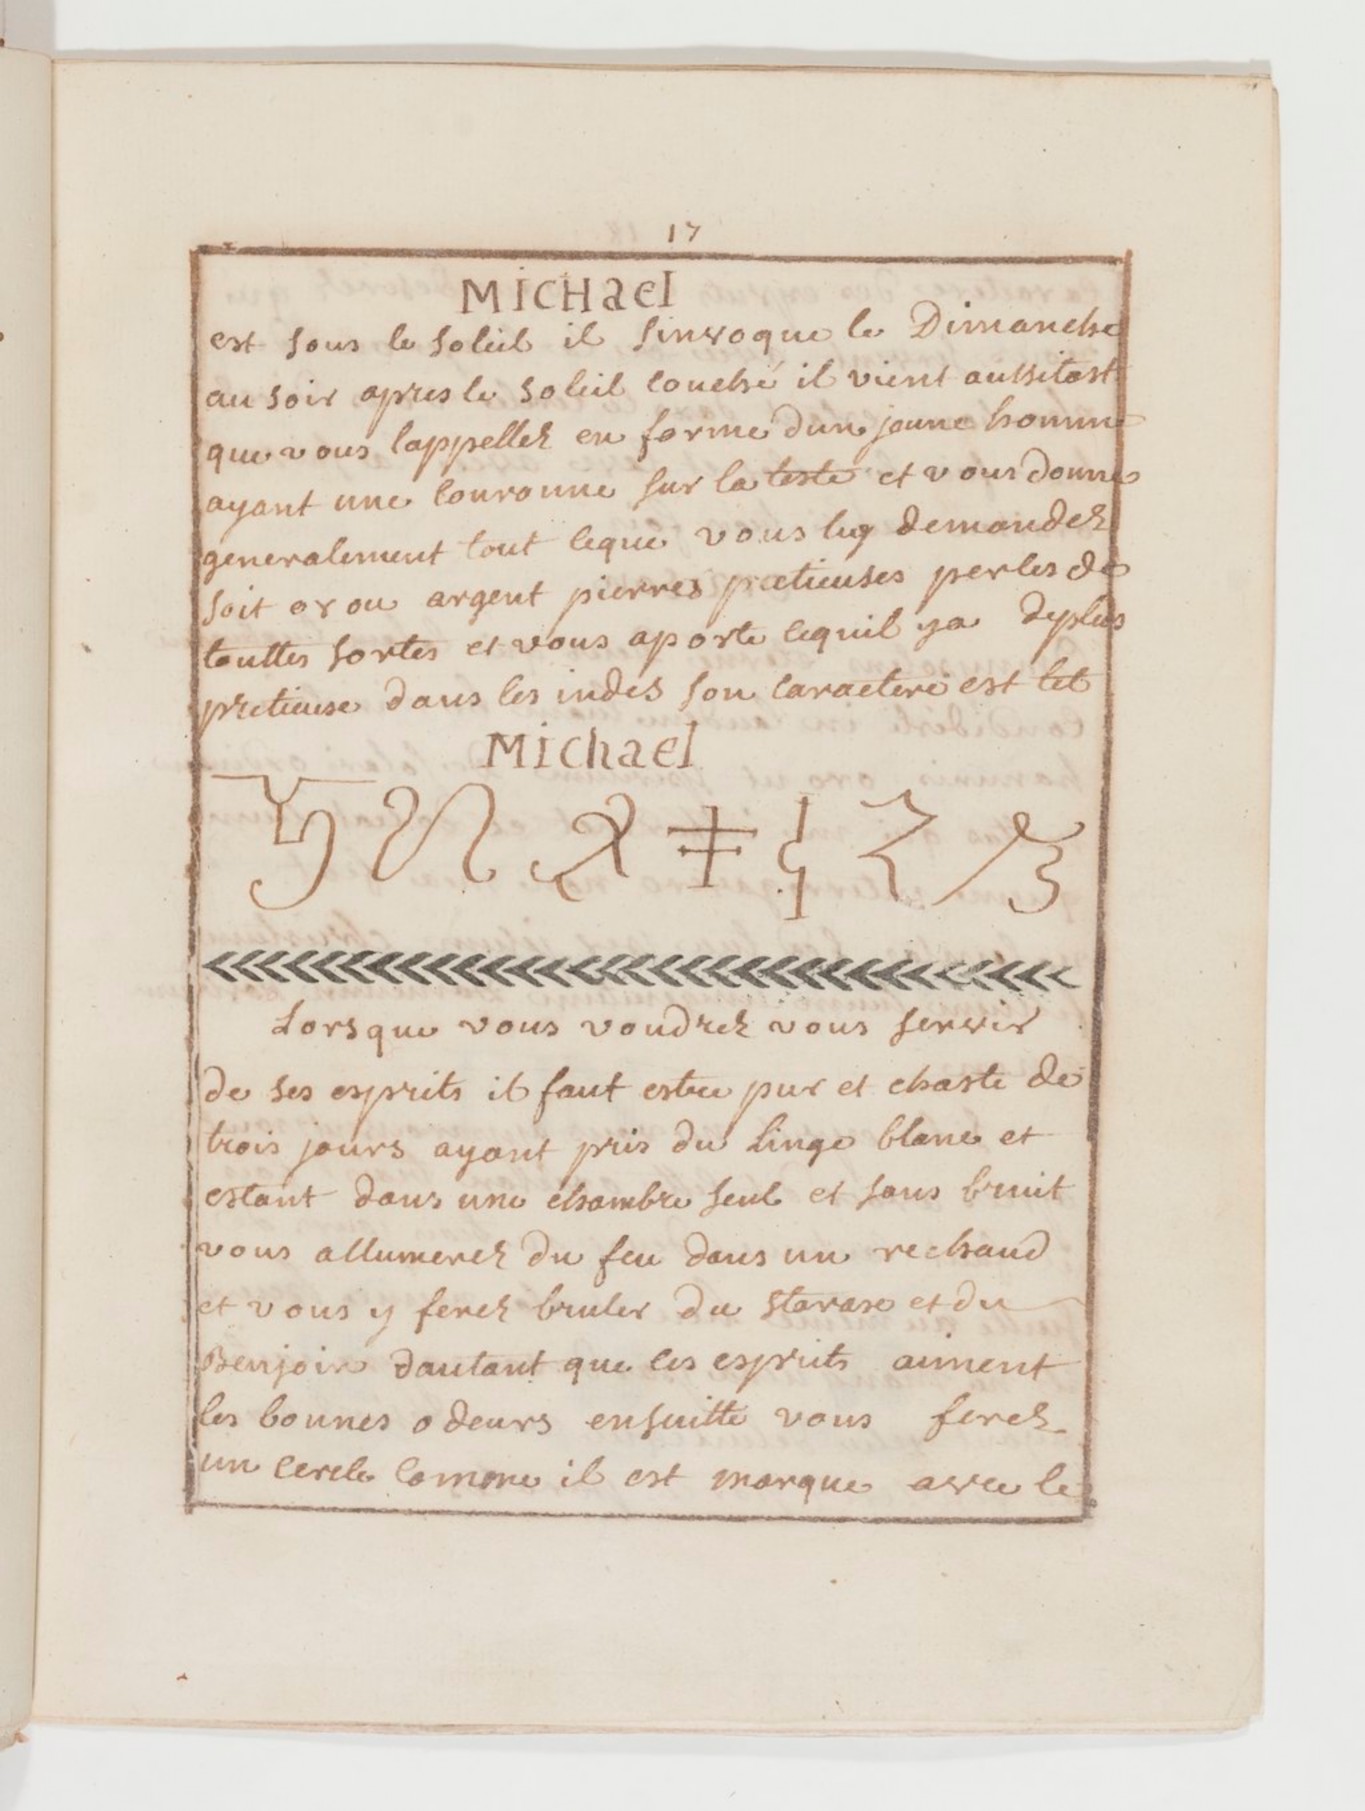 17
MICHael
est sous le soleil il sinvoque le Dimanche
au soir apres le soleil couché il vient aussitost
que vous lappellez en forme dun jeune homme
ayant une couronne sur la teste et vous donne
generalement tout ceque vous luy demandez
soit or ou argent pierres pretieuses perles de
touttes sortes et vous aporte cequil ya deplus
pretieuse dans les indes son caractere est tel
Michael
Lorsque vous voudrez vous servir
de ses esprits il faut estre pur et chaste de
trois jours ayant pris du linge blanc et
estant dans une chambre seul et sans bruit
vous allumerez du feu dans un rechaud
et vous y ferez bruler du storax et du
Benjoin dautant que les esprits aiment
les bonnes odeurs ensuitte vous ferez
un cercle comme il est marque avec le